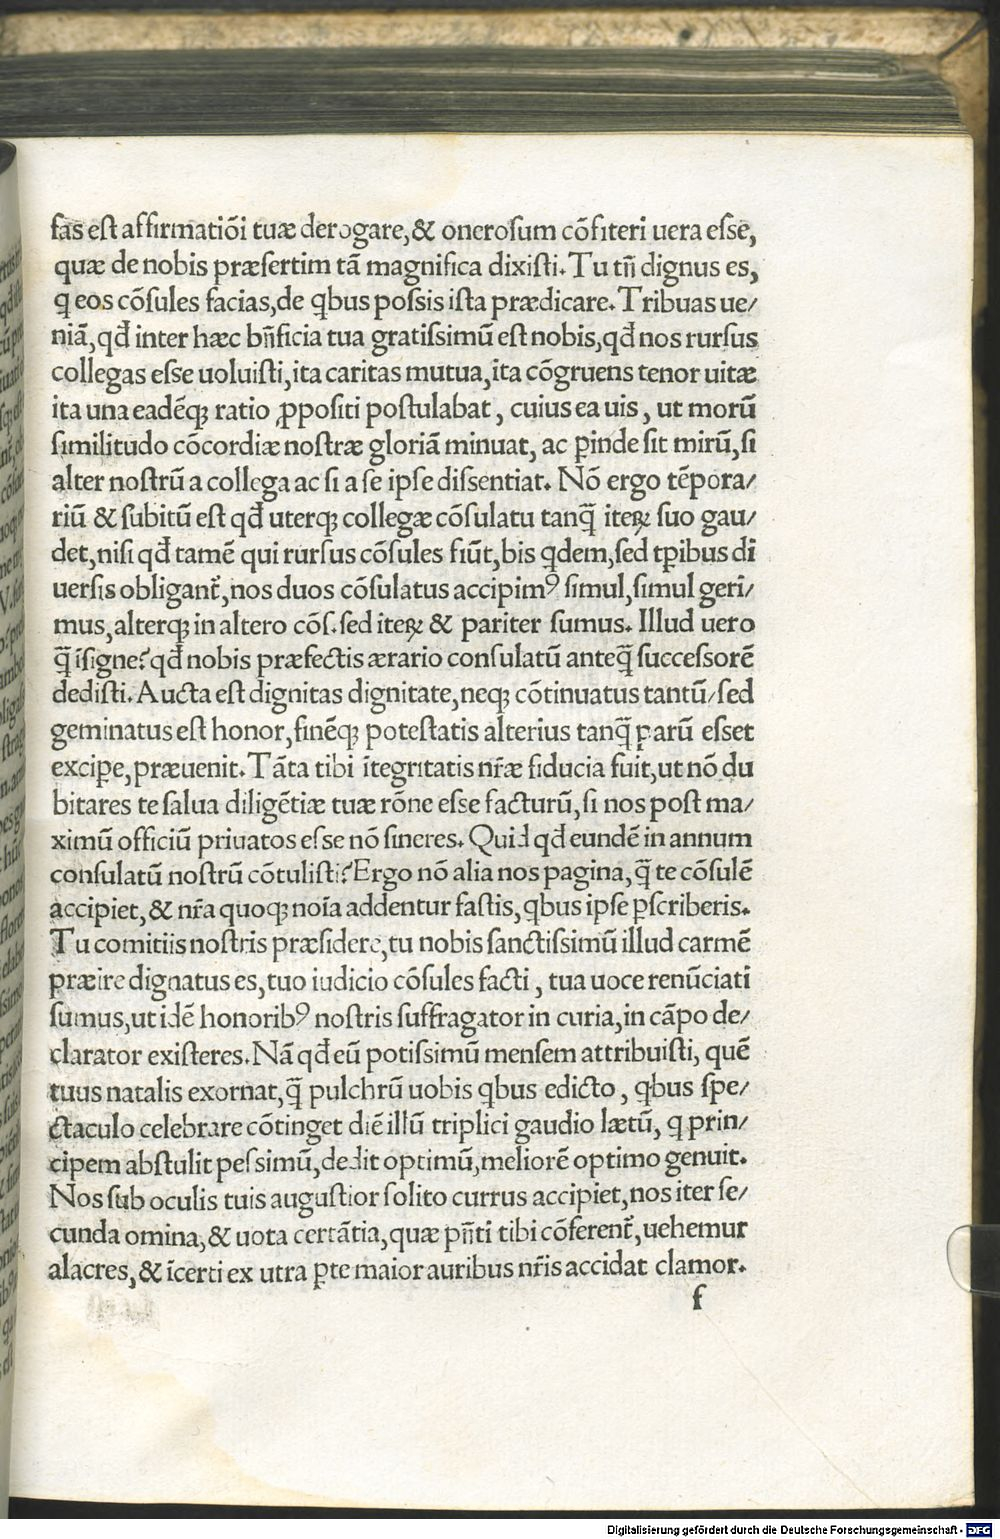 fas est affirmatiõi tuæ derogare,& onerosum cõfiteri uera esse,
quæ de nobis præsertim tã magnifica dixisti. Tu tñ dignus es,
q̃ eos cõsules facias,de qbus possis ista prædicare. Tribuas ue/
niã,qđ inter hæc bñficia tua gratissimũ est nobis,qđ nos rursus
collegas esse uoluisti,ita caritas mutua,ita cõgruens tenor uitæ
ita una eadẽqꝫ ratio ꝓpositi postulabat, cuius ea uis, ut morũ
similitudo cõcordiæ nostræ gloriã minuat, ac ꝑinde sit mirũ,si
alter nostrũ a collega ac si a se ipse dissentiat. Nõ ergo tẽpora/
riũ & subitũ est qđ uterqꝫ collegæ cõsulatu tanq̃ iteꝝ suo gau/
det,nisi qđ tamẽ qui rursus cõsules fiũt,bis qdem,sed tꝑibus di
uersis obligant̃,nos duos cõsulatus accipimꝰ simul,simul geri/
mus,alterqꝫ in altero cõs. sed iteꝝ & pariter sumus. Illud uero
q̃ ĩsigne?qđ nobis præfectis ærario consulatũ anteq̃ successorẽ
dedisti. Aucta est dignitas dignitate,neqꝫ cõtinuatus tantũ/sed
geminatus est honor,finẽqꝫ potestatis alterius tanq̃ parũ esset
exciꝑe,præuenit. Tãta tibi ĩtegritatis nr̃æ fiducia fuit,ut nõ du
bitares te salua diligẽtiæ tuæ rõne esse facturũ,si nos post ma/
ximũ officiũ priuatos esse nõ sineres. Quid qđ eundẽ in annum
consulatũ nostrũ cõtulisti?Ergo nõ alia nos pagina,q̃ te cõsulẽ
accipiet,& nr̃a quoqꝫ noĩa addentur fastis,qbus ipse ꝑscriberis.
Tu comitiis nostris præsidere,tu nobis sanctissimũ illud carmẽ
præire dignatus es,tuo iudicio cõsules facti, tua uoce renũciati
sumus,ut idẽ honoribꝰ nostris suffragator in curia,in cãpo de/
clarator existeres. Nã qđ eũ potissimũ mensem attribuisti, quẽ
tuus natalis exornat,q̃ pulchrũ uobis qbus edicto, qbus spe/
ctaculo celebrare cõtinget diẽ illũ triplici gaudio lætũ, q prin/
cipem abstulit pessimũ,dedit optimũ,meliorẽ optimo genuit.
Nos sub oculis tuis augustior solito currus accipiet,nos iter se/
cunda omina,& uota certãtia,quæ pñti tibi cõferent̃,uehemur
alacres,& ĩcerti ex utra ꝑte maior auribus nr̃is accidat clamor.
f
Digitalisierung gefördert durch die Deutsche Forschungsgemeinschaft - DFG